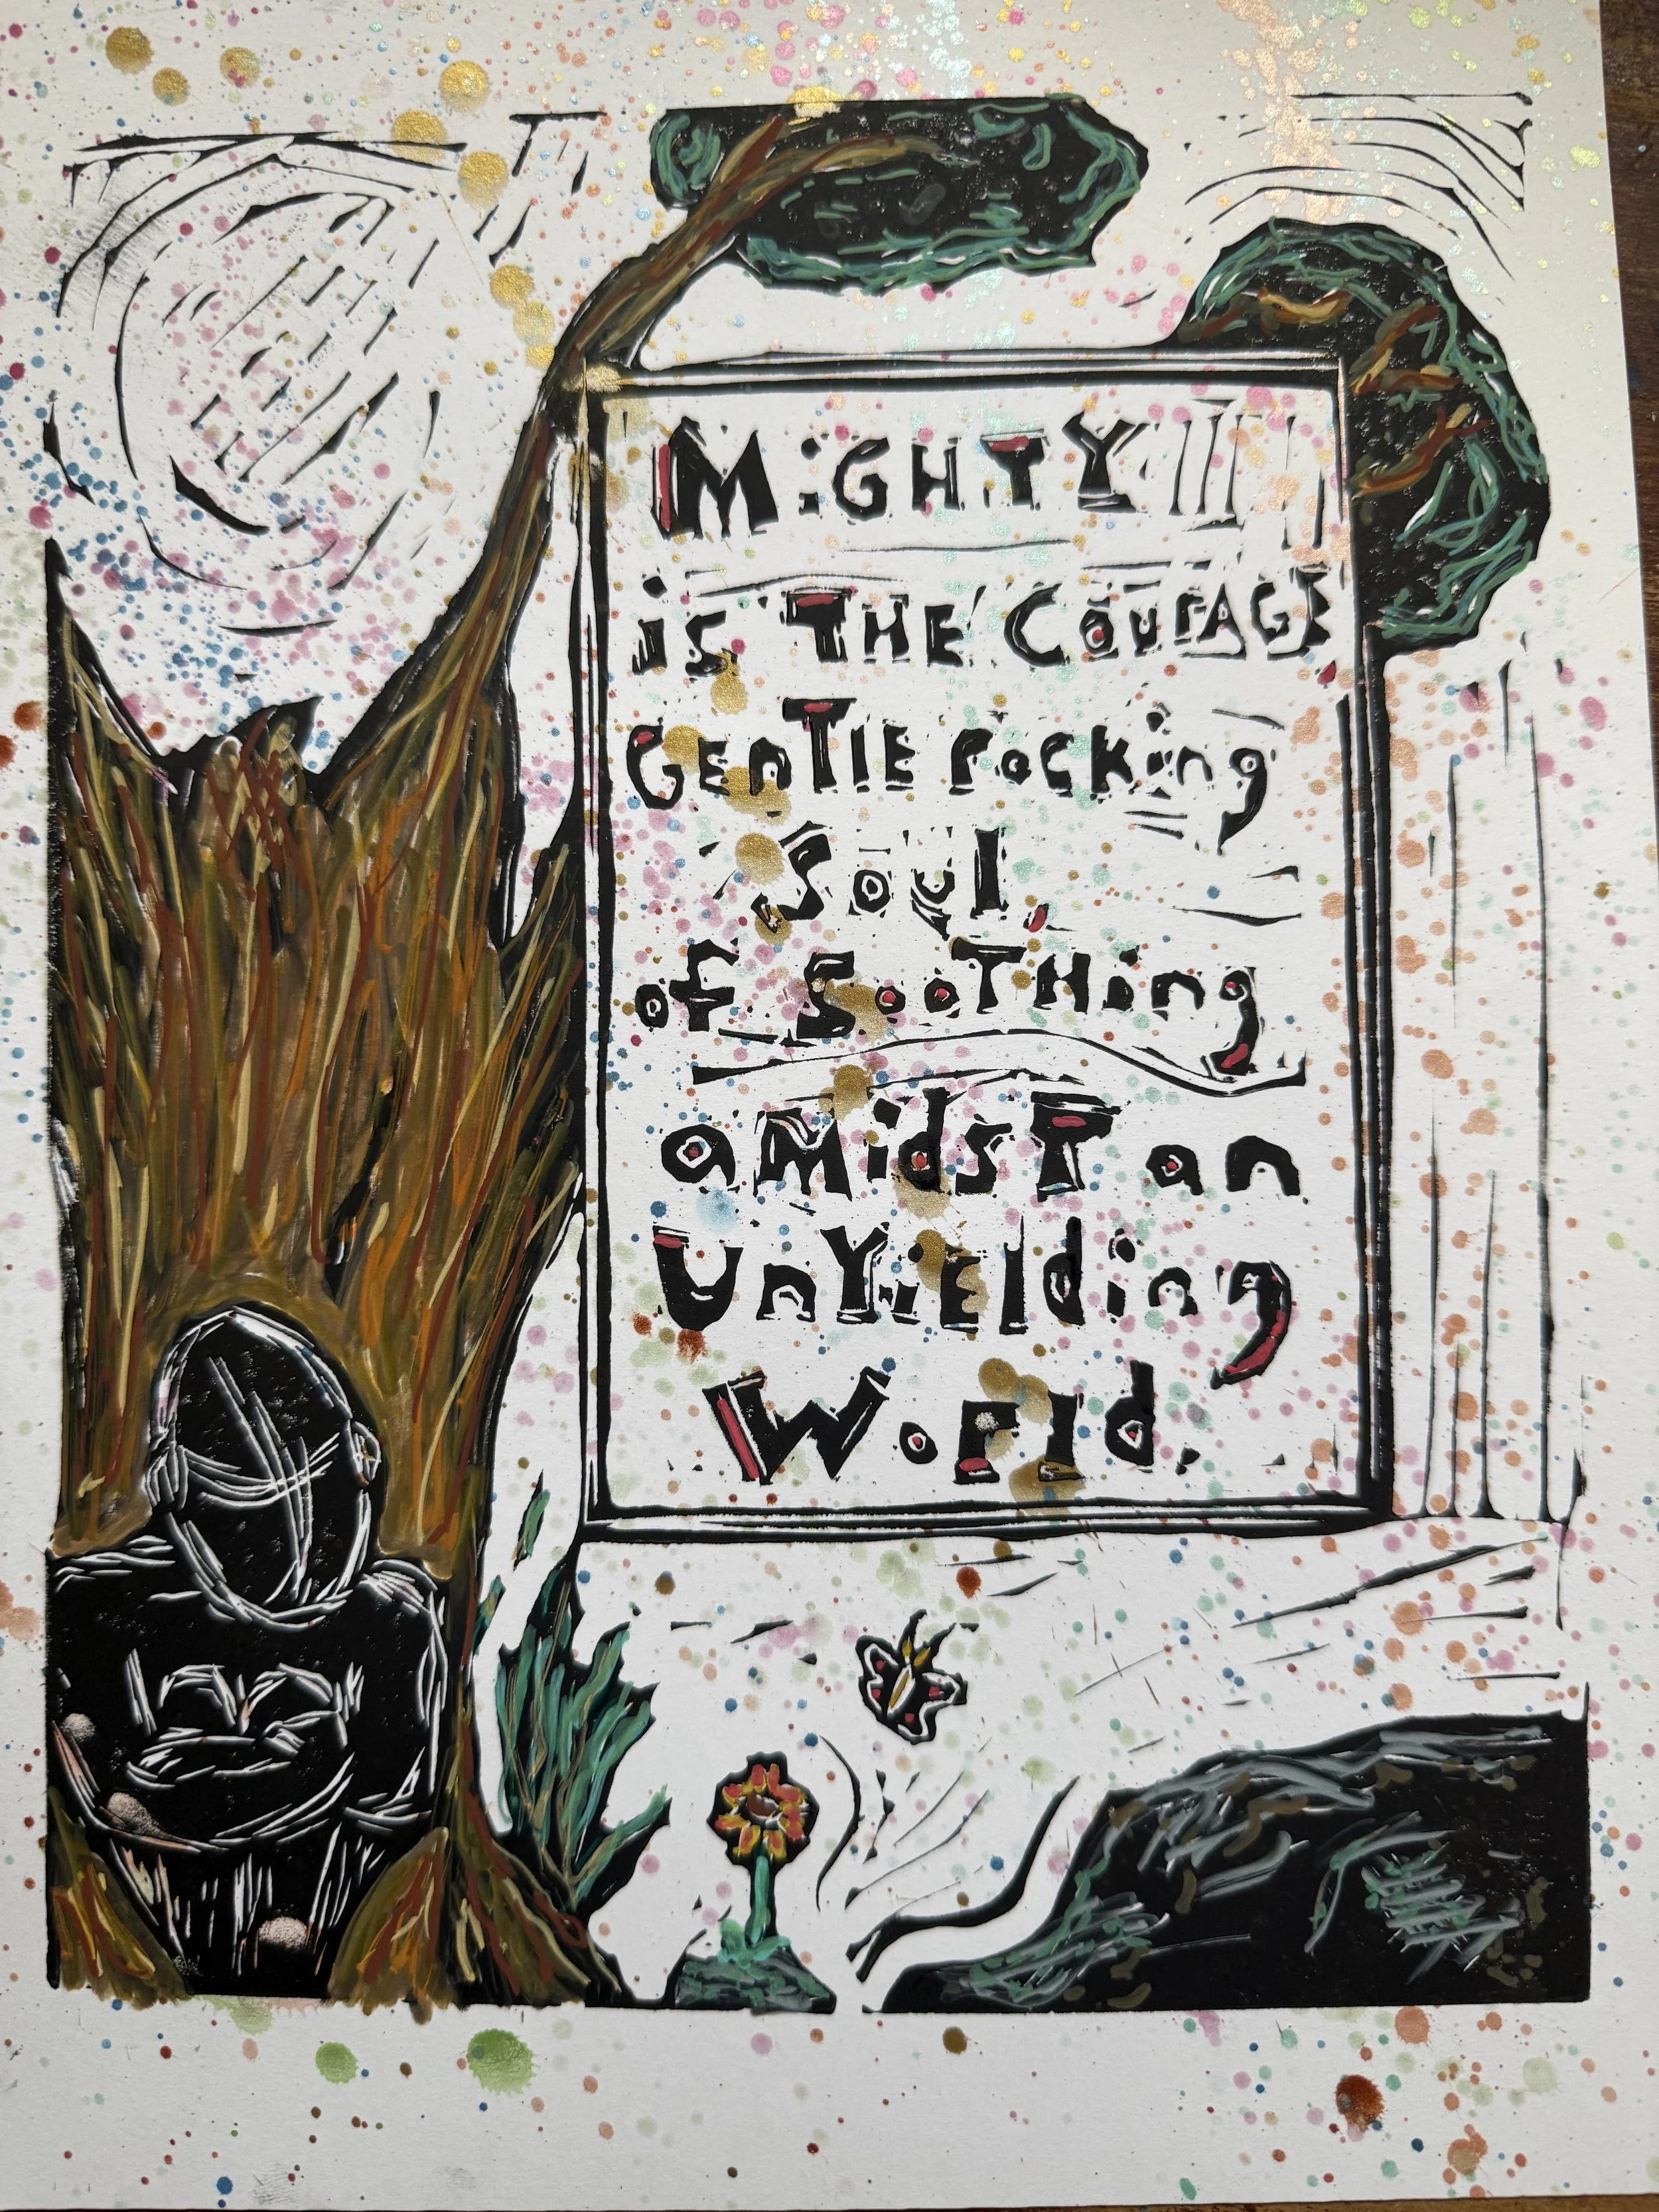 MiGHTY
is THE COUrAGE
GEnTlE rocking
Soul,
of SooTHing
aMidsT an
UnYiElding
World.